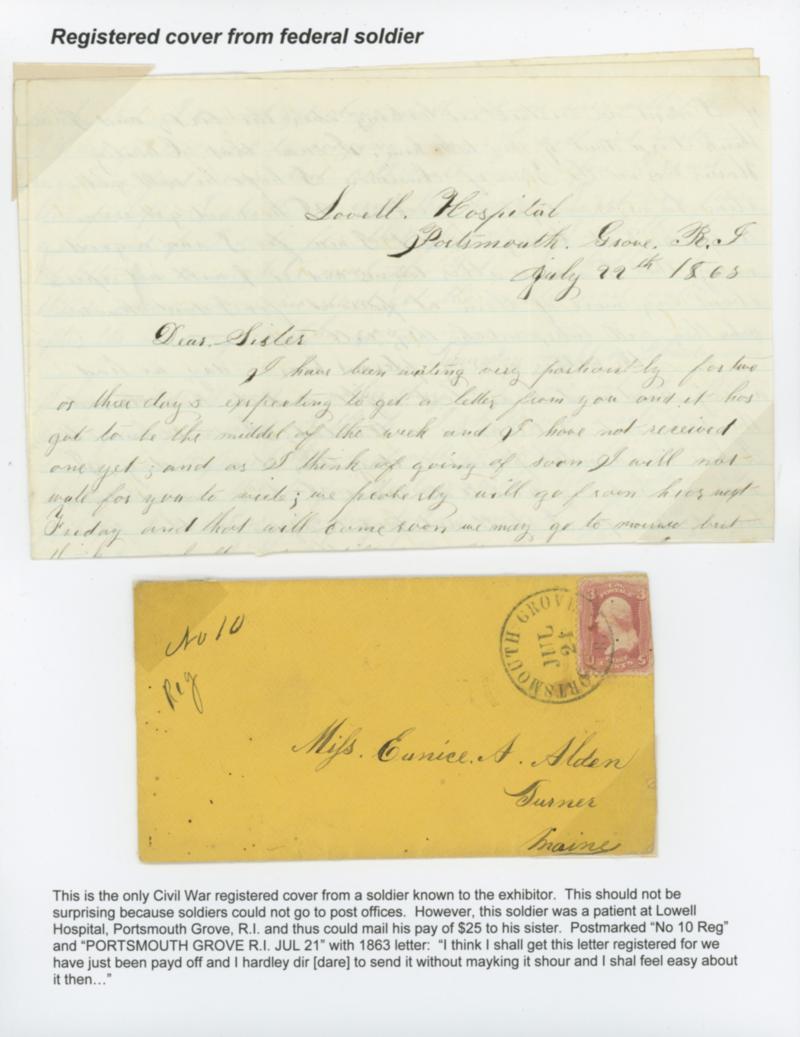 Registered cover from federal soldier
Lovell. Hospital
Portsmouth. Grove. R. I
July 22th 1863
Dear. Sister
I have been waiting very patiently for two
or three days exspecting to get a letter from you and it has
got to be the middel of the week and I have not received
one yet; and as I think of going of soon I will not
wate for you to write; we proberly will go from hear next
Friday and that will come soon we may go to
No 10
Reg
PORTSMOUTH GROVE R.
JUL
21
3 3
U S
Miss. Eunice. A. Alden
Turner
Maine
This is the only Civil War registered cover from a soldier known to the exhibitor. This should not be
surprising because soldiers could not go to post offices. However, this soldier was a patient at Lowell
Hospital, Portsmouth Grove, R.I. and thus could mail his pay of $25 to his sister. Postmarked “No 10 Reg”
and “PORTSMOUTH GROVE R.I. JUL 21” with 1863 letter: “I think I shall get this letter registered for we
have just been payd off and I hardley dir [dare] to send it without mayking it shour and I shal feel easy about
it then…”